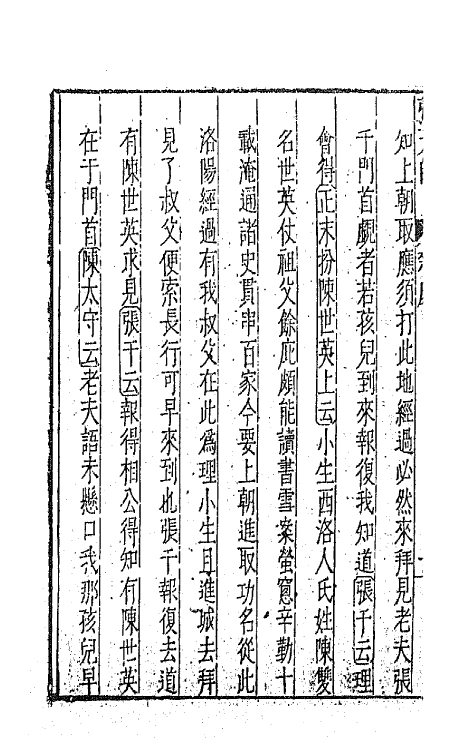 知上朝取應須打此地經過必然來拜見老夫張
千門首覷者若孩兒到來報復我知道張千云理
會得正末扮陳世英上云小生西洛人氏姓陳雙
名世英仗祖父餘庇頗能讀書雪案螢窻辛勤十
載淹通諸史貫串百家今要上朝進取功名從此
洛陽經過有我叔父在此爲理小生且進城去拜
見了叔父便索長行可早來到也張千報復去道
有陳世英求見張千云報得相公得知有陳世英
在于門首陳太守云老夫語未懸口我那孩兒早